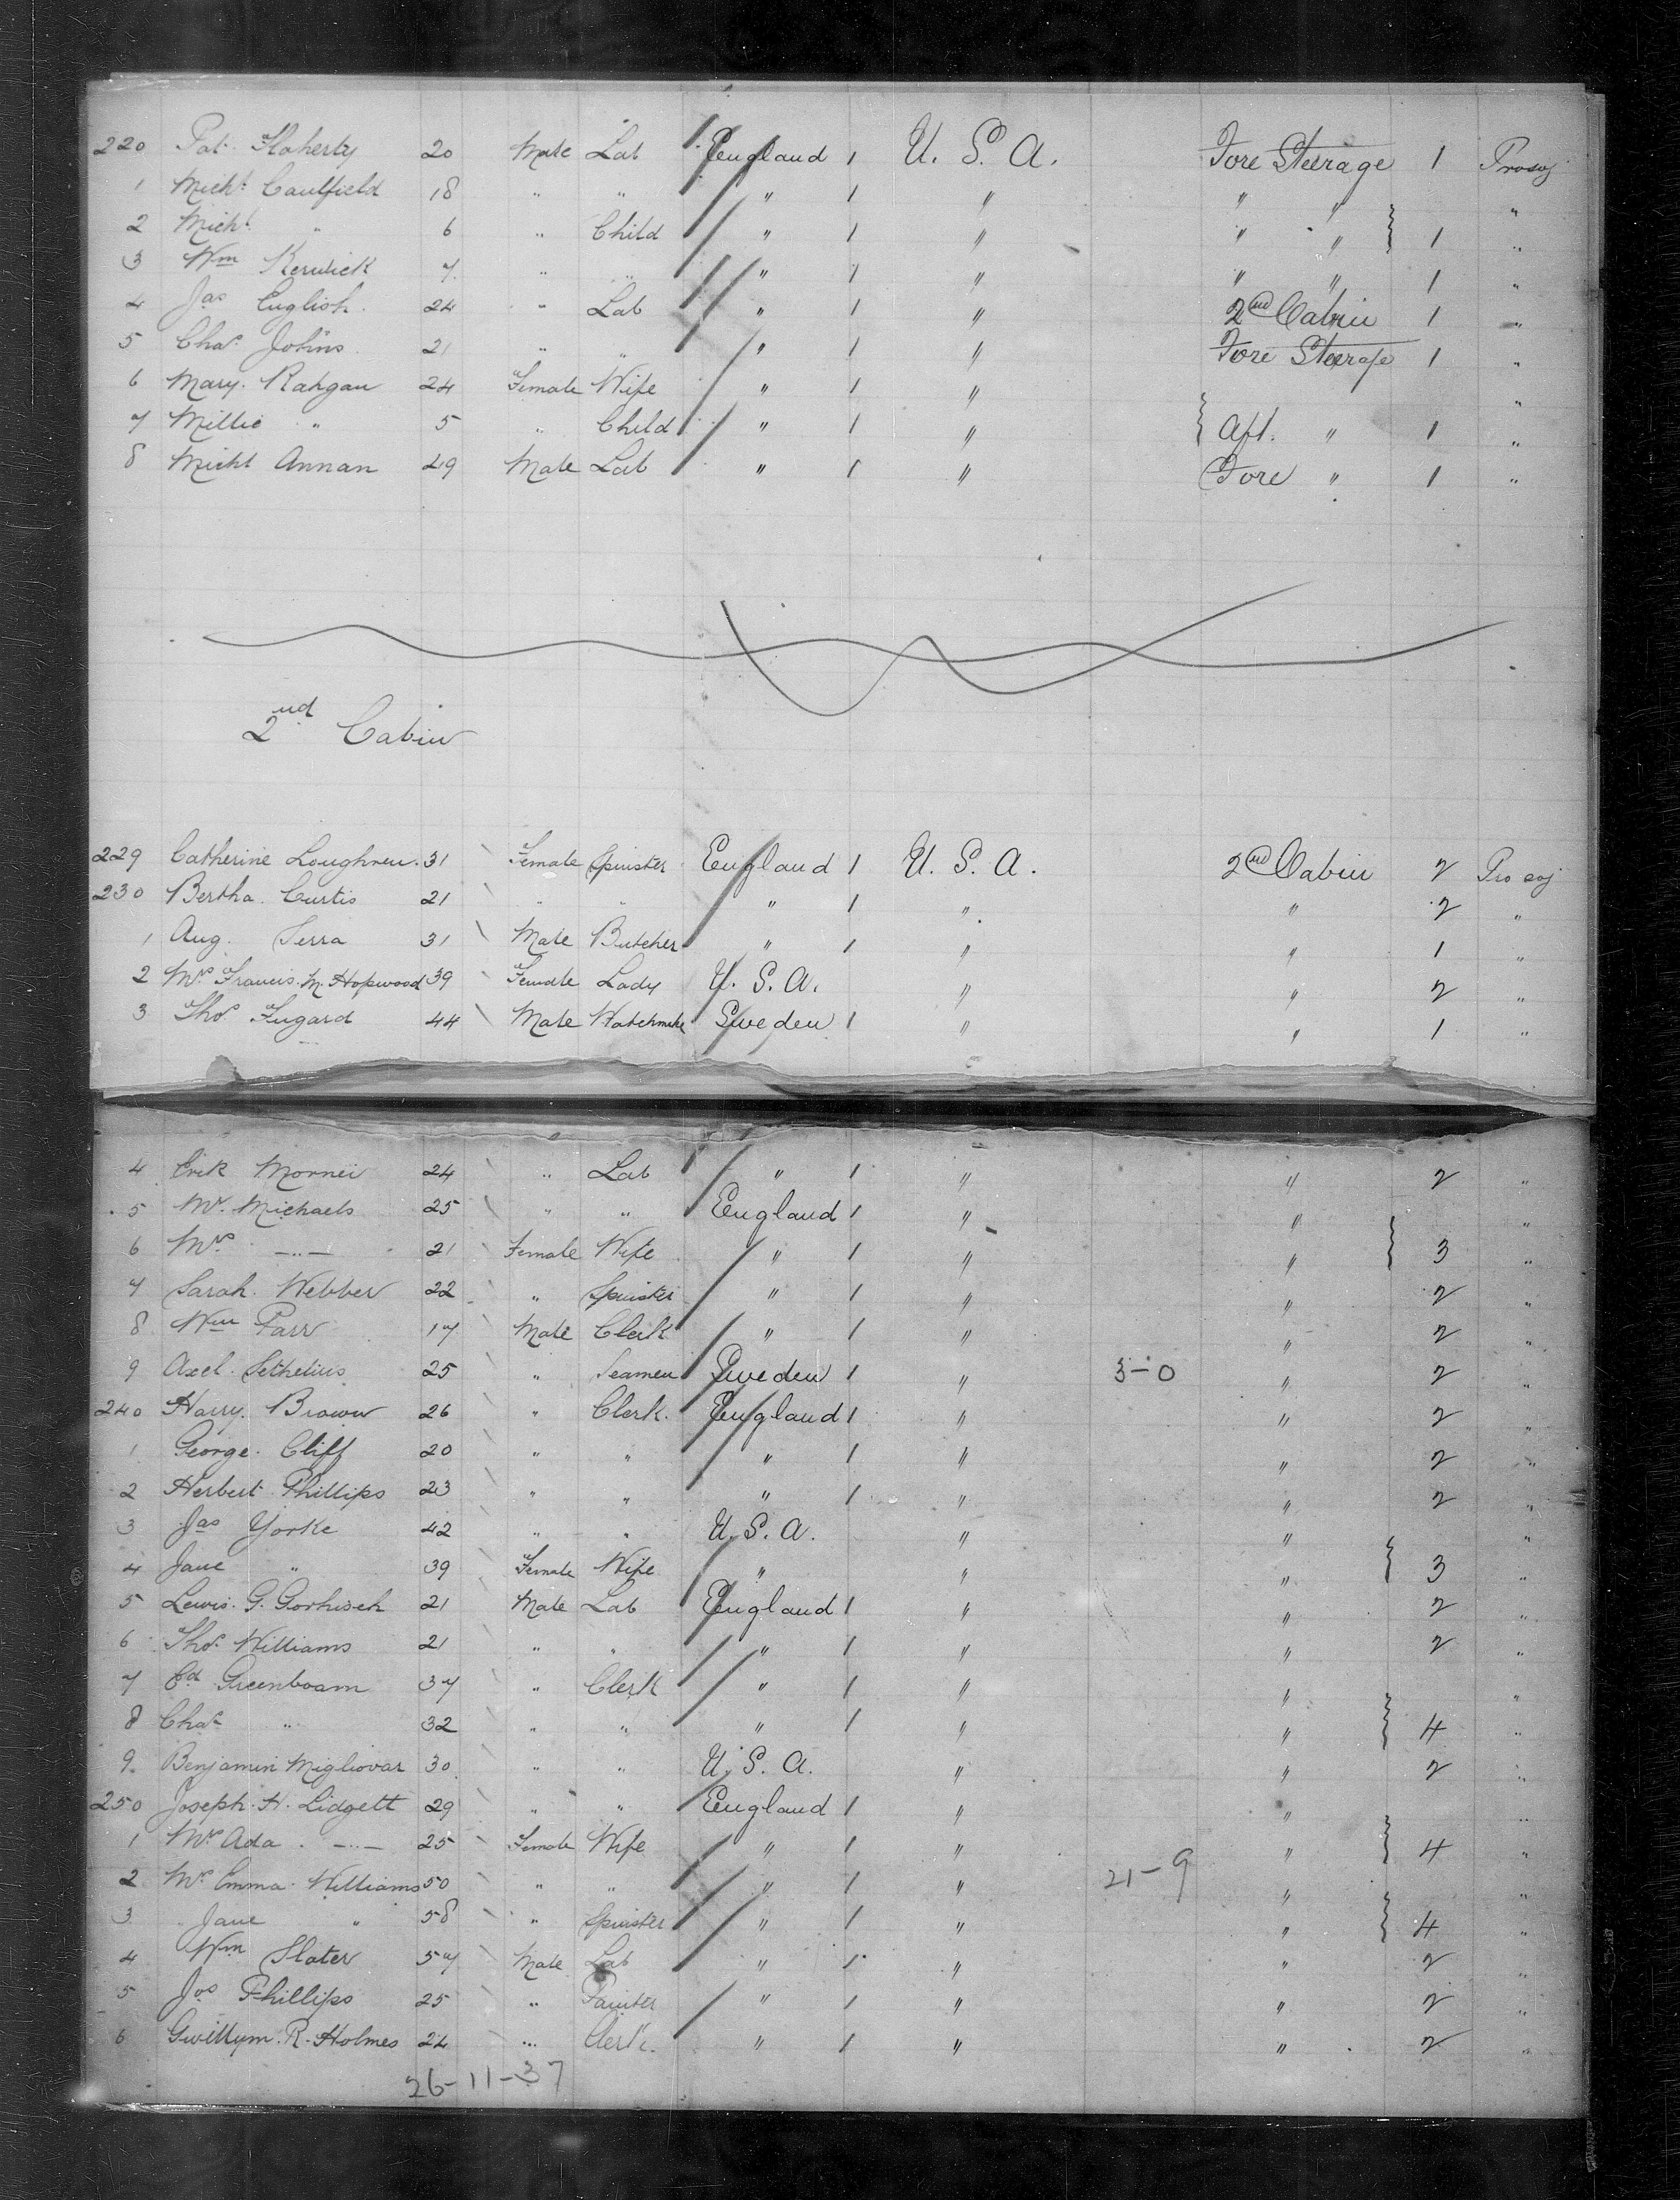 220 Pat. Flaherty 20 Male Lab England 1 U. S. A. Fore Steerage 1 Pro soj
1 Michl Caulfield 18 " " " 1 " " " "
2 Michl " 6 " Child " 1 " " " } 1 "
3 Wm Kerwick 7 " " " 1 " " " 1 "
4 Jas English 24 " Lab " 1 " 2nd Cabin 1 "
5 Chas. Johns 21 " " " 1 " Fore Steerage 1 "
6 Mary. Rahgan 24 Female Wife " 1 " "
7 Millie " 5 " Child " 1 " { Aft. " 1 "
8 Michl Annan 29 Male Lab " 1 " Fore " 1 "
2nd Cabin
229 Catherine Loughren. 31 Female Spinster England 1 U. S. A. 2nd Cabin 2 Pro soj
230 Bertha. Curtis 21 " " " 1 " " 2 "
1 Aug. Serra 31 Male Butcher " 1 " " 1 "
2 Mrs Francis. M. Hopwood 39 Female Lady U. S. A. " " 2 "
3 Thos. Fugard 44 Male Watchmake Sweden 1 " " 1 "
4 Erik Mornei 24 " Lab " 1 " " 2 "
5 Mr. Michaels 25 " " England 1 " " "
6 Mrs —"— 21 Female Wife " 1 " " } 3 "
7 Sarah. Webber 22 " Spinster " 1 " " 2 "
8 Wm Parr 17 Male Clerk " 1 " " 2 "
9 Axel. Sethelius 25 " Seamen Sweden 1 " 3-0 " 2 "
240 Harry. Brown 26 " Clerk. England 1 " " 2 "
1 George. Cliff 20 " " " 1 " " 2 "
2 Herbert Phillips 23 " " " 1 " " 2 "
3 Jas Yorke 42 " " U. S. A. " " "
4 Jane " 39 Female Wife " " " } 3 "
5 Lewis. G. Gorhisek 21 Male Lab England 1 " " 2 "
6 Thos. Williams 21 " " " 1 " " 2 "
7 Ed Greenboam 37 " Clerk " 1 " " "
8 Chas " 32 " " " 1 " " } 4 "
9. Benjamin Migliovar 30 " " U. S. A. " " 2 "
250 Joseph. H. Lidgett 29 " " England 1 " " "
1 Mrs Ada. —"— 25 Female Wife " 1 " " } 4 "
2 Mrs Emma. Williams 50 " " " 1 " 21-9 " "
3 Jane " 58 " Spinster " 1 " " } 4 "
4 Wm Slater 57 Male Lab " 1 " " 2 "
5 Jos Phillips 25 " Painter " 1 " " 2 "
6 Gwillym. R. Holmes 24 " Clerk. " 1 " " 2 "
26-11-37